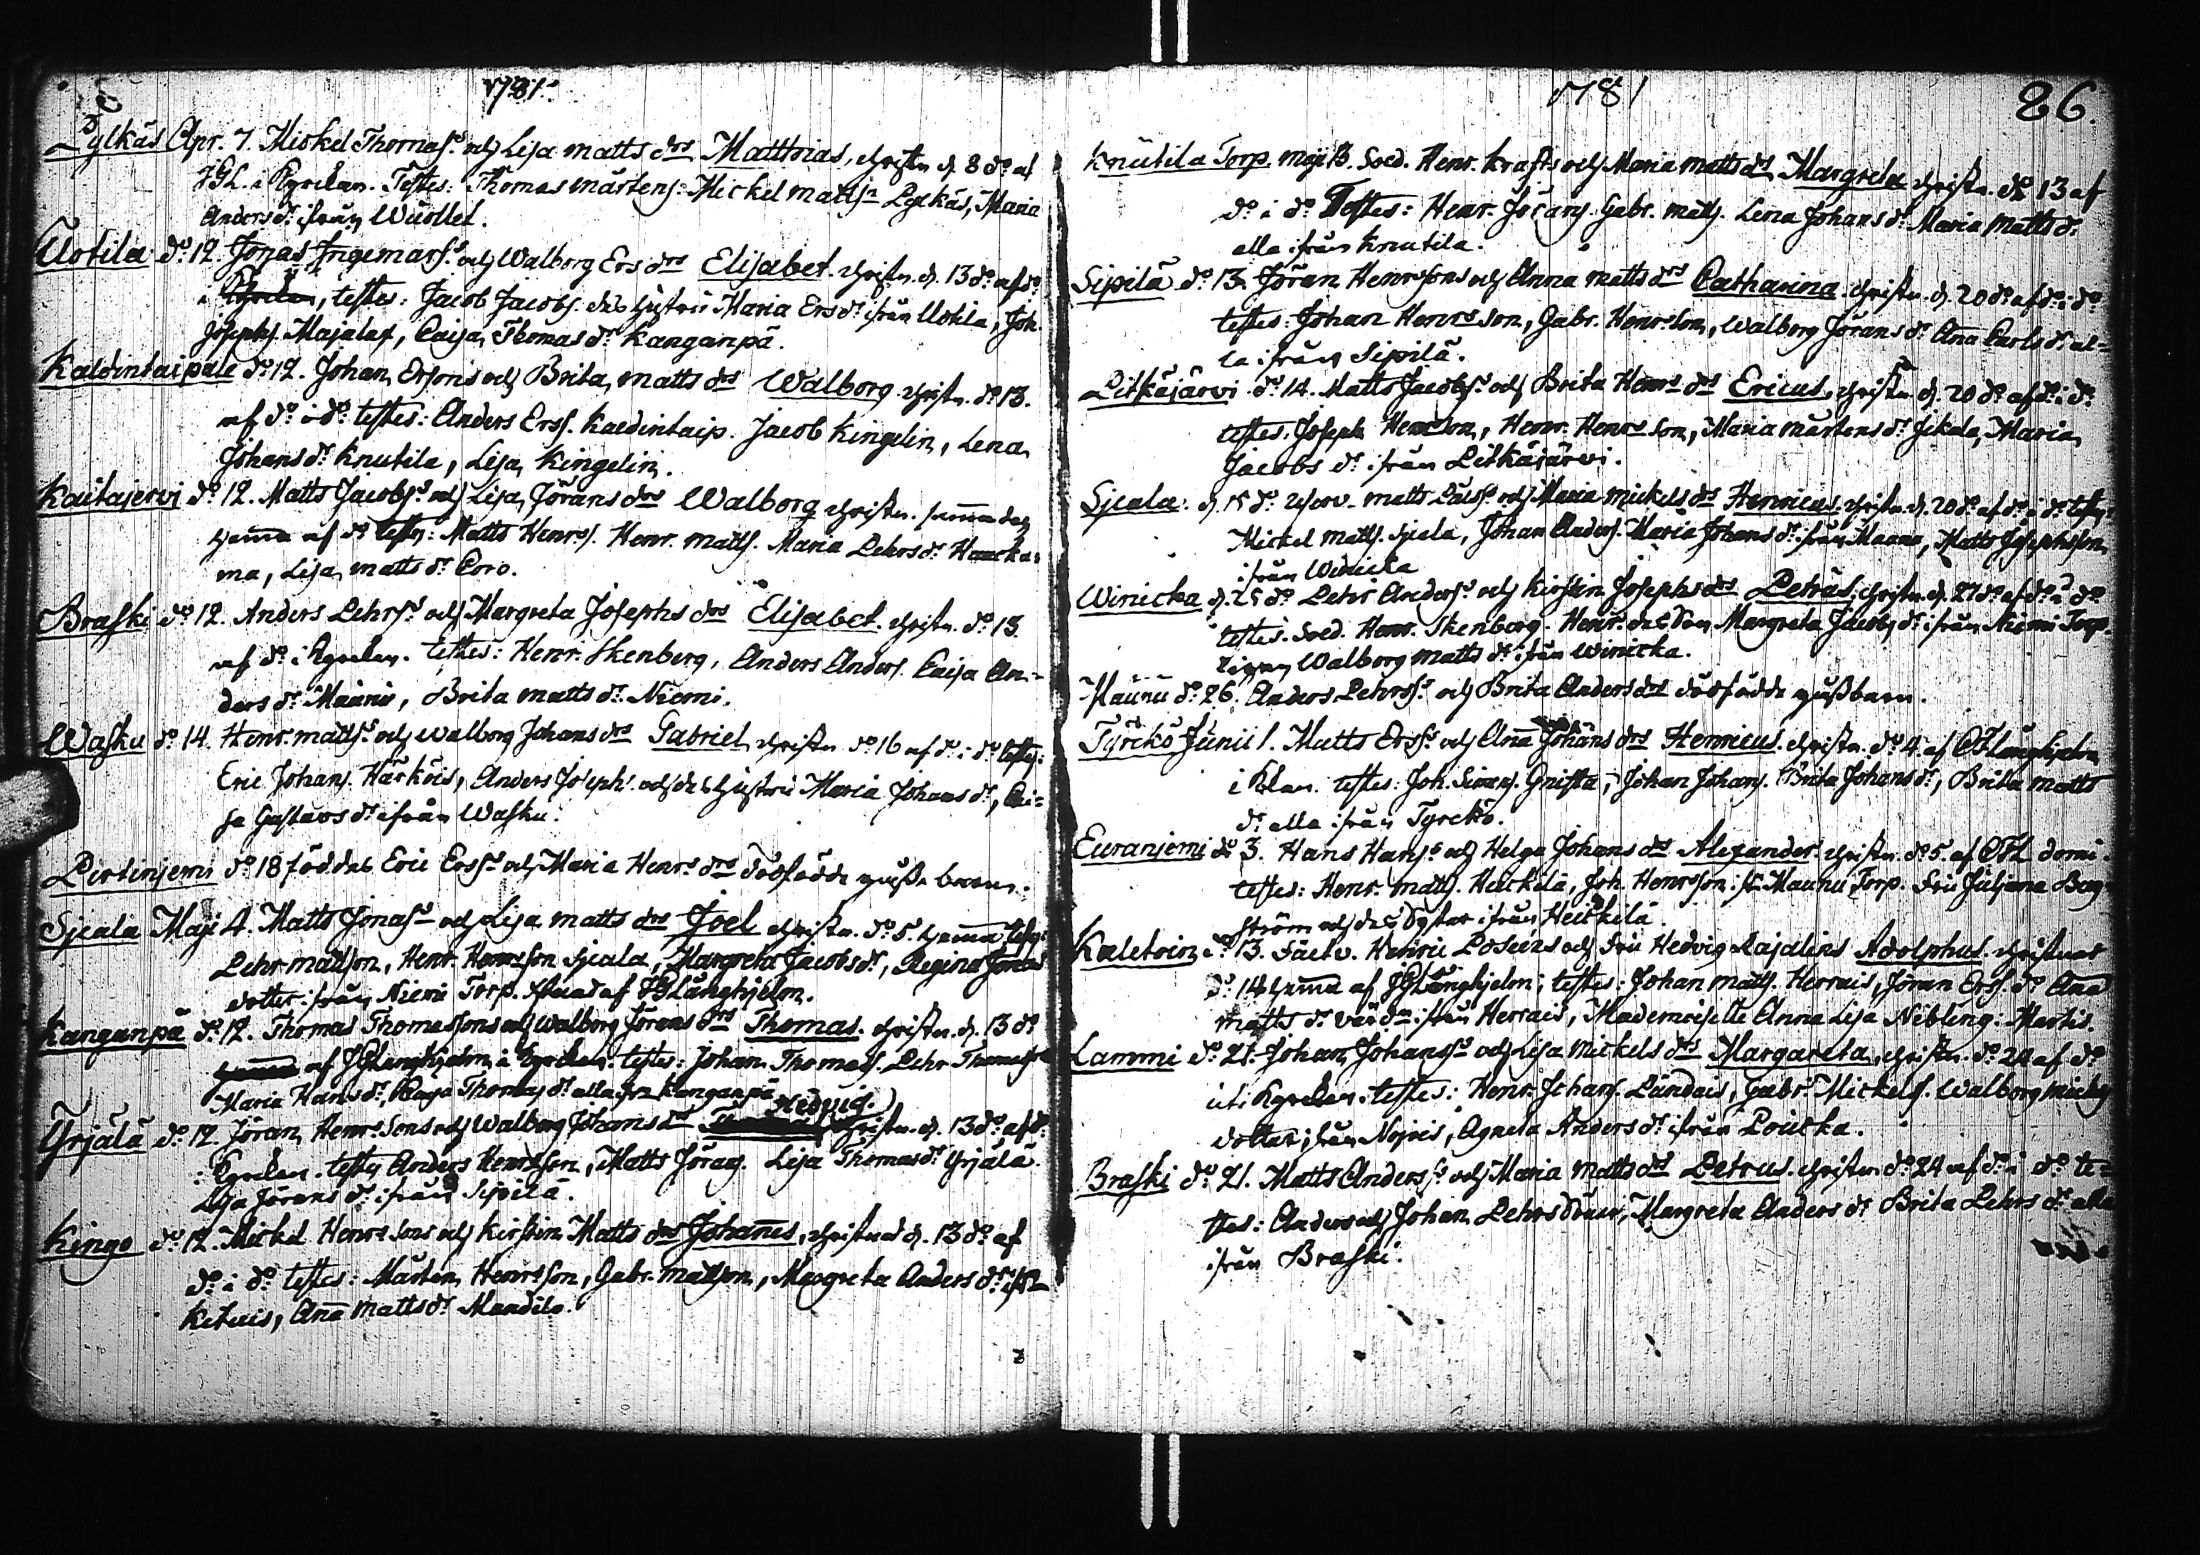 1781.
Pylkäs Apr. 7. Mickel Thomass. och Lisa matts drs Matthias, christn. d. 8 do af
JGL. i Kyrckan. Testes: Thomas mårtens. Mickel mattsn Pylkäs, Maria
Anders dr ifrån Wuollet.
Uotila do 12. Jonas Ingemarss. och Walborg Ers drs Elisabet. christn. d. 13 do af do
i Kyrckan, testes: Jacob Jacobs. des hustru Maria Ers dr ifrån Uotila, Joh.
Josephs. Majalax, Caisa Thomas dr Kanganpä.
Kaldintaipale do 12. Johan Ersons och Brita matts drs Walborg. christn. do 13.
af do i do. testes: Anders Erss. Kaldintaip. Jacob Kingelin, Lena
Johans dr Knutila, Lisa Kingelin.
Kaitajervi do 12. Matts Jacobss. och Lisa Jörans drs Walborg christn. samma dag
hemma af do testes: Matts Henrs. Henr. matts. Maria Pehrs dr
ma, Lisa matts dr Coro.
Braski do 12. Anders Pehrss. och Margreta Josephs drs Elisabet. christn. do 13.
af do i Kyrckan. testes: Henr. Skenberg, Anders Anders. Caisa An-
ders dr Maunu, Brita matts dr Niemi.
Wasku do 14. Henr. mattss. och Walborg Johans drs Gabriel christn. do 16 af do i do testes:
Eric Johans. Härköis, Anders Josephs. och des hustru Maria Johans dr, Cai-
sa Gustavs dr ifrån Wasku.
Pirtinjemi do 18 föddes Eric Erss. och Maria Henrs drs dödfödde gusse barn.
Sjeala Maji 4. Matts Jonass. och Lisa matts drs Joel christn. do 5. hemma testes:
Pehr mattson, Henr. Henrsson Sjeala, Margreta Jacobs dr, Regina Jonas
dotter ifrån Niemi Torp. af JGLånghjelm.
Kanganpä do 12. Thomas Thomassons och Walborg Jörans drs Thomas. christn. d. 13 do
hemma af JGLånghjelm i Kyrckan. testes: Johan Thomass. Pehr Thomasson
Maria Hans dr, Caysa Thomas dr alla frn Kanganpä
Hedvig.
Yrjälä do 12. Jöran Henrs Sons och Walborg Johans drs christn. d. 13 do af do
i Kyrckan. testes Anders Henrsson, Matts Jörans. Lisa Thomas dr Yrjälä.
Lisa Jörans dr ifrån Sipilä.
Kingo do 12. Mickel Henrs Sons och Kirstin Matts drs Johannes, christnad d. 13 do af
do i do testes: Mårten Henrsson, Gabr. mattson, Margreta Anders dr ifrn
Ketuis, Ana matts dr Mandila.
1781
86.
Knutila Torp. maji 13. Sold. Henr. Krafts och Maria matts drs Margreta christn. do 13 af
do i do Testes: Henr. Jörans. Gabr. matts. Lena Johans dr Maria matts dr
alla ifrån Knutila.
Sipilä do 13. Jöran Henrssons och Anna matts drs Catharina. christn. d. 20 do af do i do
testes: Johan Henrs son, Gabr. Henrsson, Walborg Jörans dr Ana Carls dr al-
la ifrån Sipilä.
Litkäjärvi. do 14. Matts Jacobss. och Brita Henrs drs Ericus, christn. d. 20 do af do i do
testes: Joseph Henrsson, Henr. Henrs son, Maria mårtens dr Jekala, Maria
Jacobs dr ifrån Litkäjärvi.
Sjeala. d. 15 do matts och Maria mickels drs Henricus, christn. d. 20 do af do i do testes:
Mickel matts. Sjeala, Johan Anders. Maria Johans dr ifrån Maano, Matts Josephsson
ifrån Winicka
Winicka d. 25 do Pehr Anderss. och Kirstin Josephs drs Petrus, christn. d. 27 do af do i do
testes. Sold. Henr. Skenberg. Henr. Margreta Jacobs dr ifrån Niemi Torp.
Walborg matts dr ifrån Winicka.
Maunu do 26. Anders Pehrss. och Brita Anders drs dödfödde gussbarn.
Tyrckö Junii 1. Matts Erss. och Ana Johans drs Henricus. christn. do 4. af CFLånghjelm
i Klan. testes: Joh. Simons. Gnista, Johan Johans. Brita Johans dr, Brita matts
dr alla ifrån Tyrckö.
Euranjemi do 3. Hans Hanss. och Helga Johans drs Alexander. christn. do 5. af CFL domi.
testes: Henr. matts. Heickilä, Joh. Henrsson. fr. Maunu Torp. Fru Juljana Bag-
ström och des Syster ifrån Heickilä
Kaletoin do 13. Fäetv. Henric Poseens och Fru Hedvig Lajalins Adolphus. christnat
do 14 hemma af JGLånghjelm; testes: Johan matts. Herrais, Jöran Ers. do Ana
matts dr ifrån Herrais, Mademoiselle Anna Lisa Nibling. Martis.
Lammi do 21. Johan Johanss. och Lisa Mickels drs Margareta, christn. do 24 af do
uti Kyrckan. testes: Henr. Johans. Ländais, Gabr. Mickels. Walborg mickels
dotter ifrån Nojois, Agneta Anders dr ifrån Poicka.
Braski do 21. Matts Anderss. och Maria matts drs Petrus. christn. do 24 af do i do te-
stes: Anders och Johan Pehrs Söner, Margreta Anders dr Brita Pehrs dr alla
ifrån Braski.